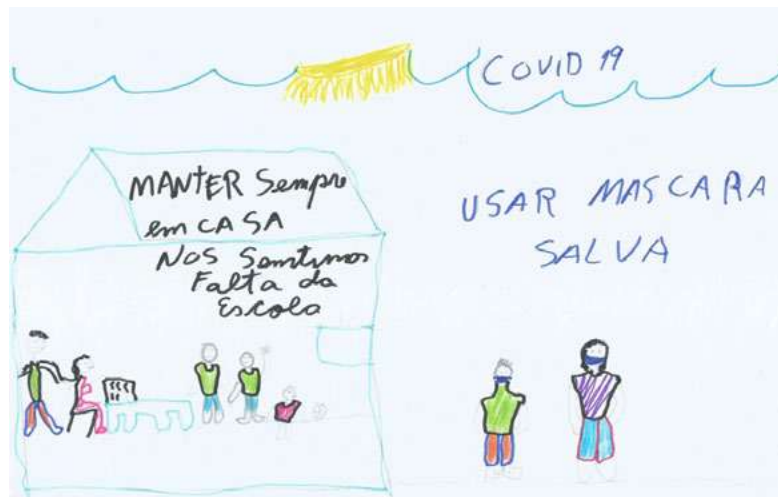 COVID 19
MANTER Sempre
em CASA
NOS Sentimos
Falta da
Escola
USAR MASCARA
SALVA